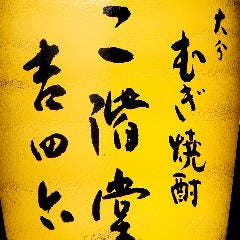 大分
むぎ焼酎
二階堂
吉四六